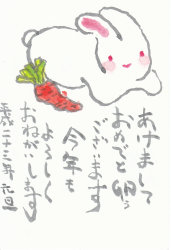 あけまして
おめでと卯う
ございます
今年も
よろしく
おねがいします
平成二十三年 元旦